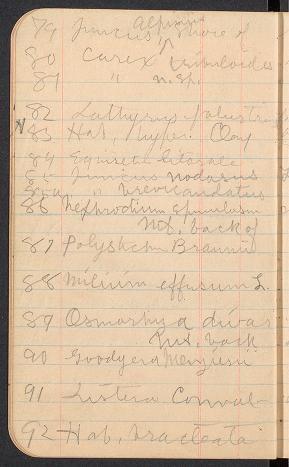 alpinus
79 Juncus, shore of
80 Carex tribuloides
81 " n. sp.
82 Lathyrus palustris
83 Hab. hyper. Clay
84 Equiseti litorale
85 Juncus nodosus
85a " brevicaudatus
86 Nephrodium spinulosum
Mt. back of
87 Polystichm Braunii
88 Milium effusum L.
89 Osmorhiza divar
Mt. back
90 Goodyera Menziesii
91 Listera Conval
92 Hab. bracteata